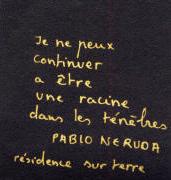 Je ne peux
continuer
a être
une racine
dans les ténèbres
PABLO NERUDA
résidence sur terre